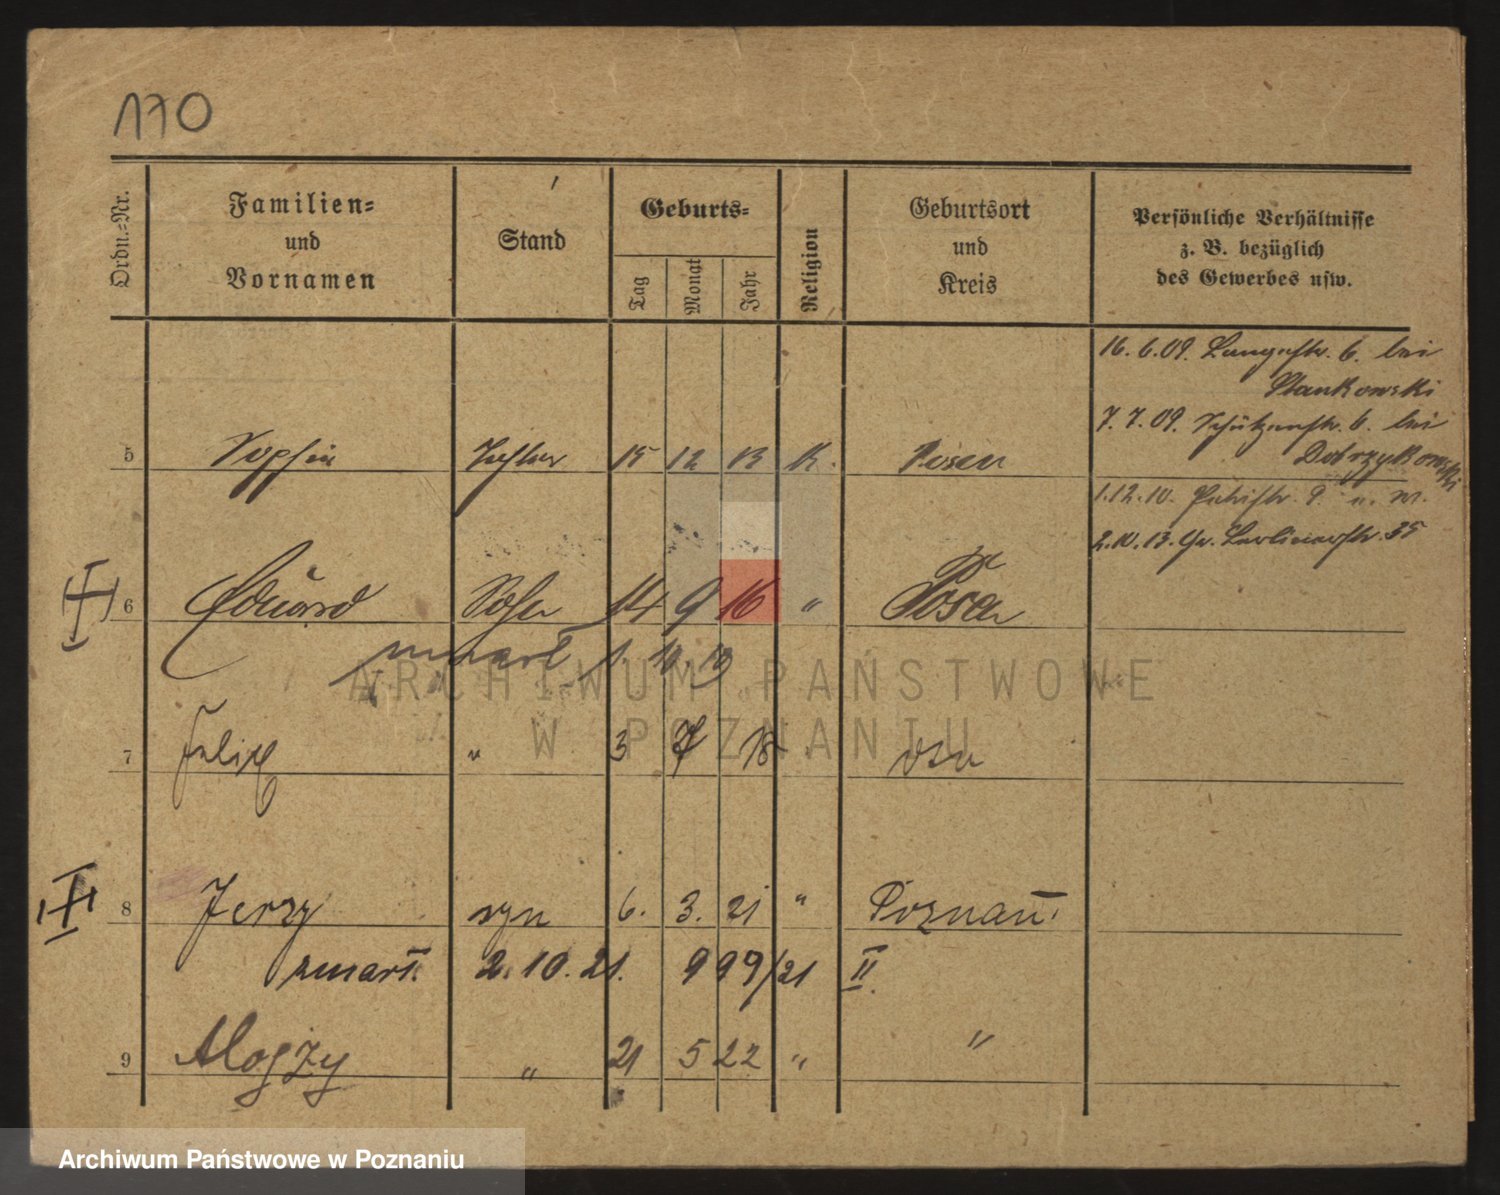 170
Ordn.=Nr.
Familien=
und
Vornamen
Stand
Geburts=
Tag
Monat
Jahr
Religion
Geburtsort
und
Kreis
Persönliche Verhältnisse
z. B. bezüglich
des Gewerbes usw.
16. 6. 09. Langestr. 6. bei
Stankowski
7. 7. 09. Schützenstr. 6. bei
Dobrzykowski
5 Sophie Tochter 15 12 13 K. Posen
1. 12. 10. 9. n. W.
2. 10. 13. Gr. Berlinerstr. 35
6 Eduard Sohn 14 9 16 " Posen
zmarł 1. 10.
7 Felix " 3 7 18
8 Jerzy syn 6. 3. 21 " Poznań
zmarł. 2. 10. 21. 999/21 II.
9 Alojzy " 21 5 22 " "
ARCHIWUM PAŃSTWOWE
W POZNANIU
Archiwum Państwowe w Poznaniu